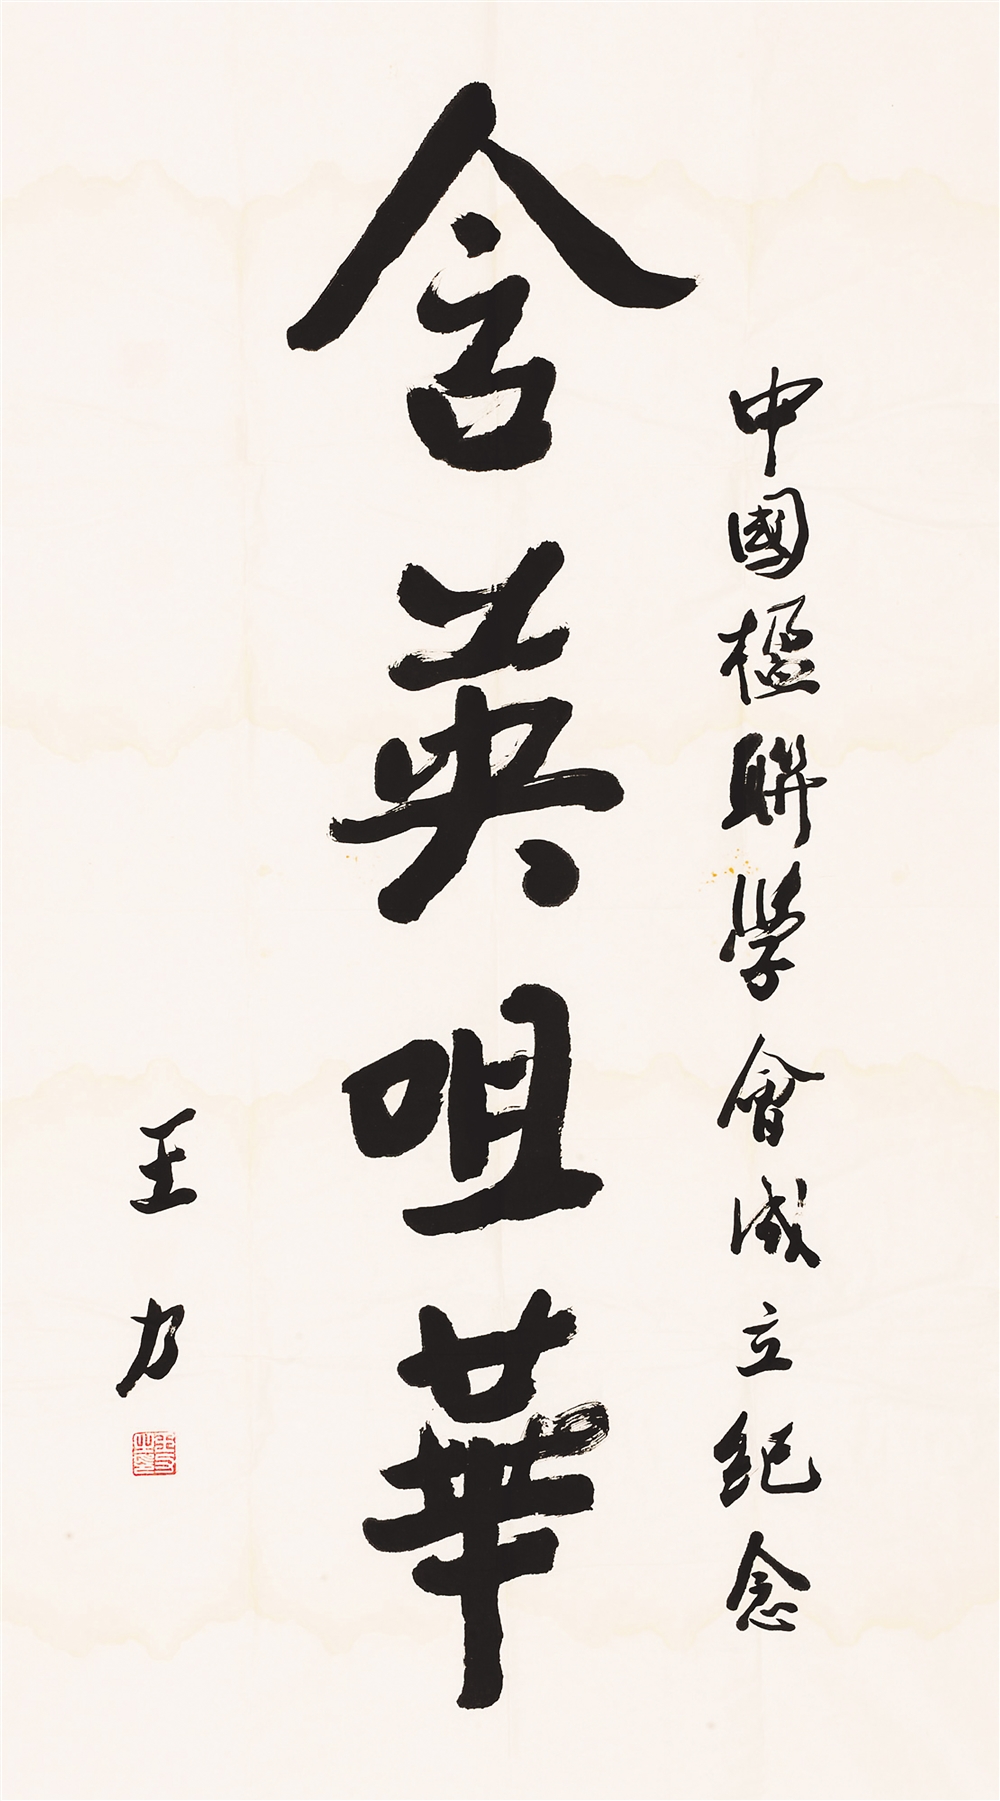 中國楹聯學會成立纪念
含英咀華
王力